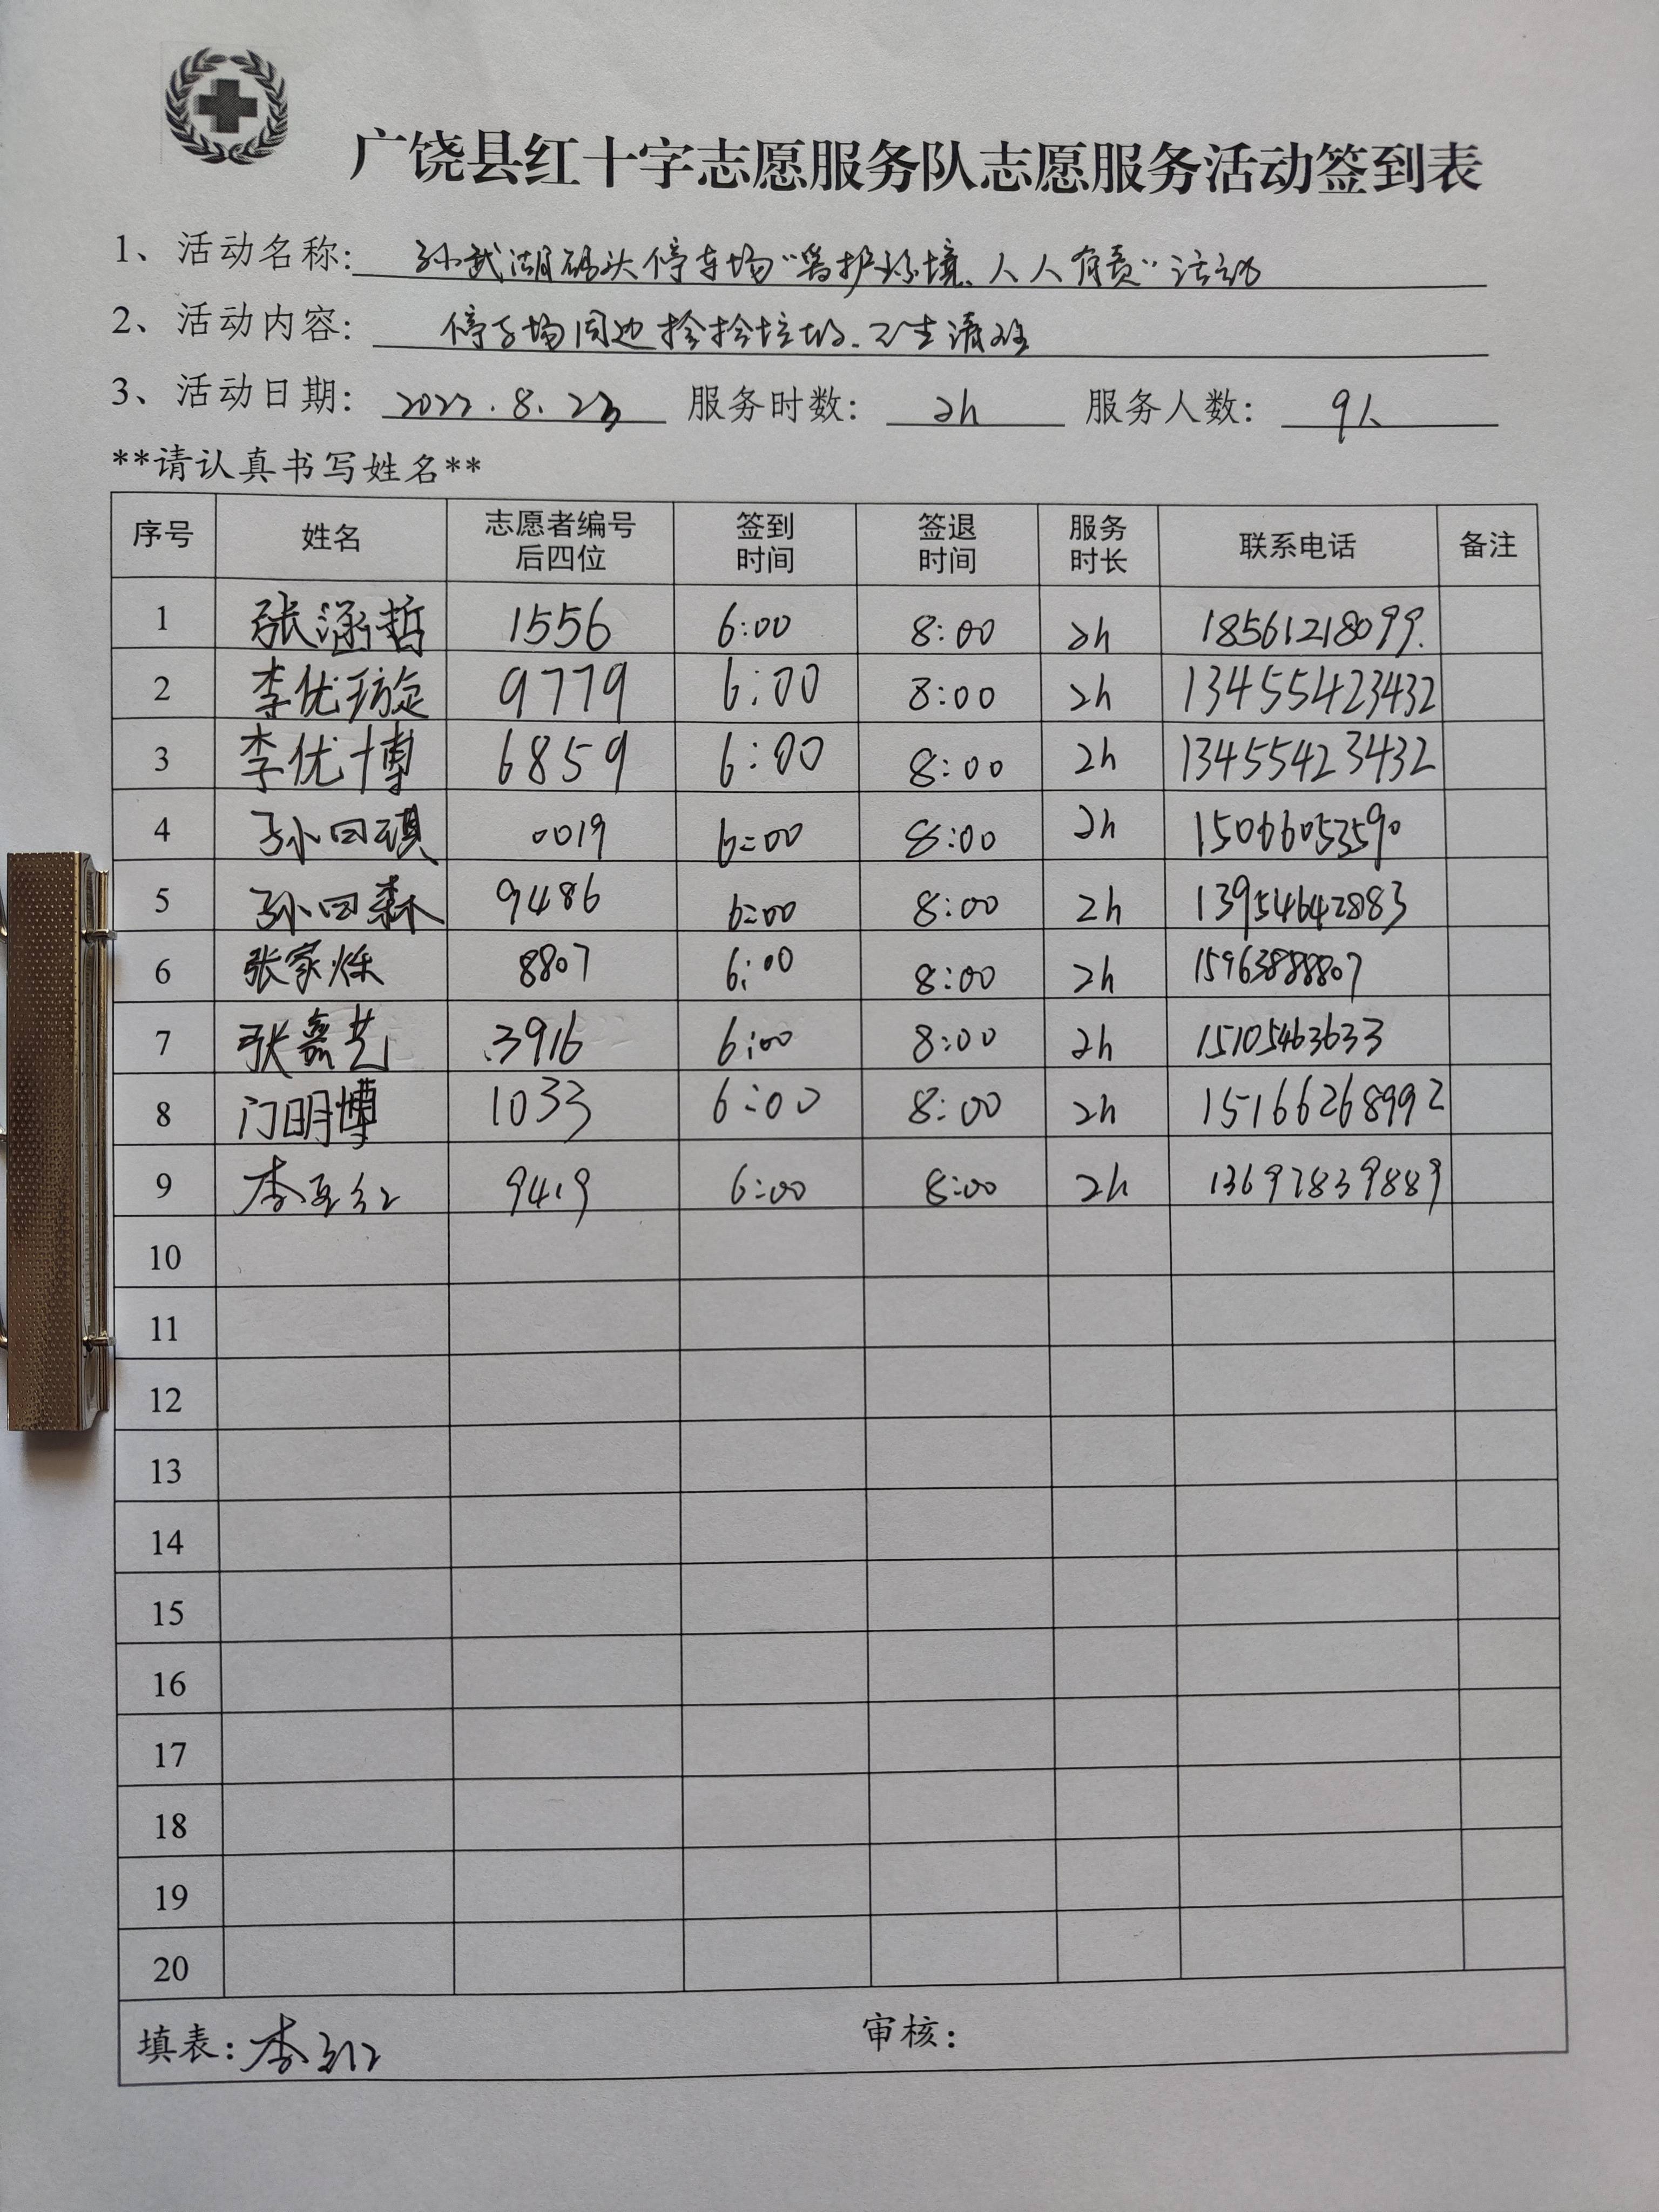 广饶县红十字志愿服务队志愿服务活动签到表
1、活动名称: 孙武湖码头停车场“爱护环境、人人有责”活动
2、活动内容: 停车场周边捡拾垃圾、卫生清理
3、活动日期: 2022.8.23 服务时数: 2h 服务人数: 9人
**请认真书写姓名**
序号 姓名 志愿者编号后四位 签到时间 签退时间 服务时长 联系电话 备注
1 张涵哲 1556 6:00 8:00 2h 18561218099.
2 李优璇 9779 6:00 8:00 2h 13455423432
3 李优博 6859 6:00 8:00 2h 13455423432
4 孙田琪 0019 6:00 8:00 2h 15066053590
5 孙田森 9486 6:00 8:00 2h 13954642883
6 张家烁 8807 6:00 8:00 2h 15963888807
7 张鑫艺 3916 6:00 8:00 2h 15105463633
8 门明博 1033 6:00 8:00 2h 15166268992
9 李 红 9419 6:00 8:00 2h 13697839889
10
11
12
13
14
15
16
17
18
19
20
填表: 李 红 审核: